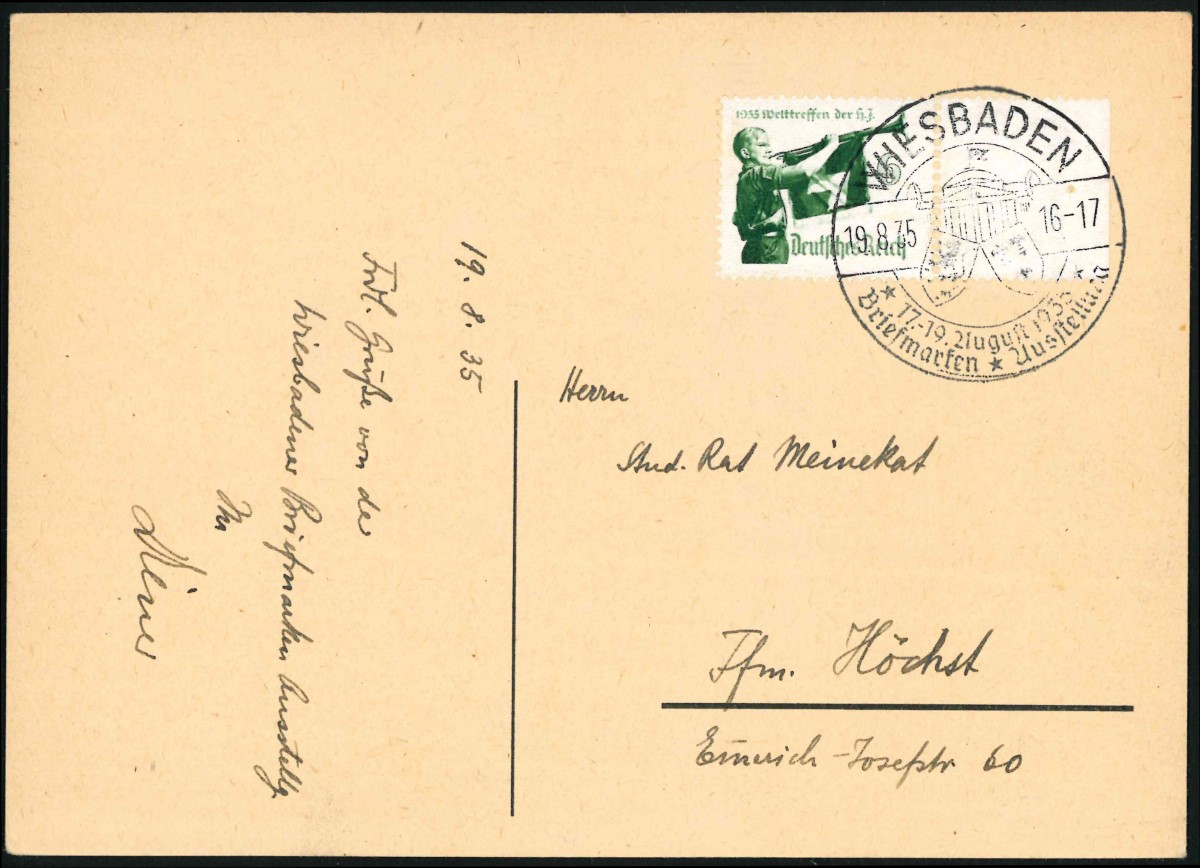 1935 Welttreffen der H.J.
6
Deutsches Reich
WIESBADEN
19.8.35
16-17
★ 17.-19. August 1935 ★
Briefmarken ★ Ausstellung
19. 8. 35
Frdl. Grüße von der
Wiesbadener Briefmarken Ausstellg.
Ihr
Herrn
Stud. Rat Meinekat
Ffm. Höchst
Emerich-Josefstr 60